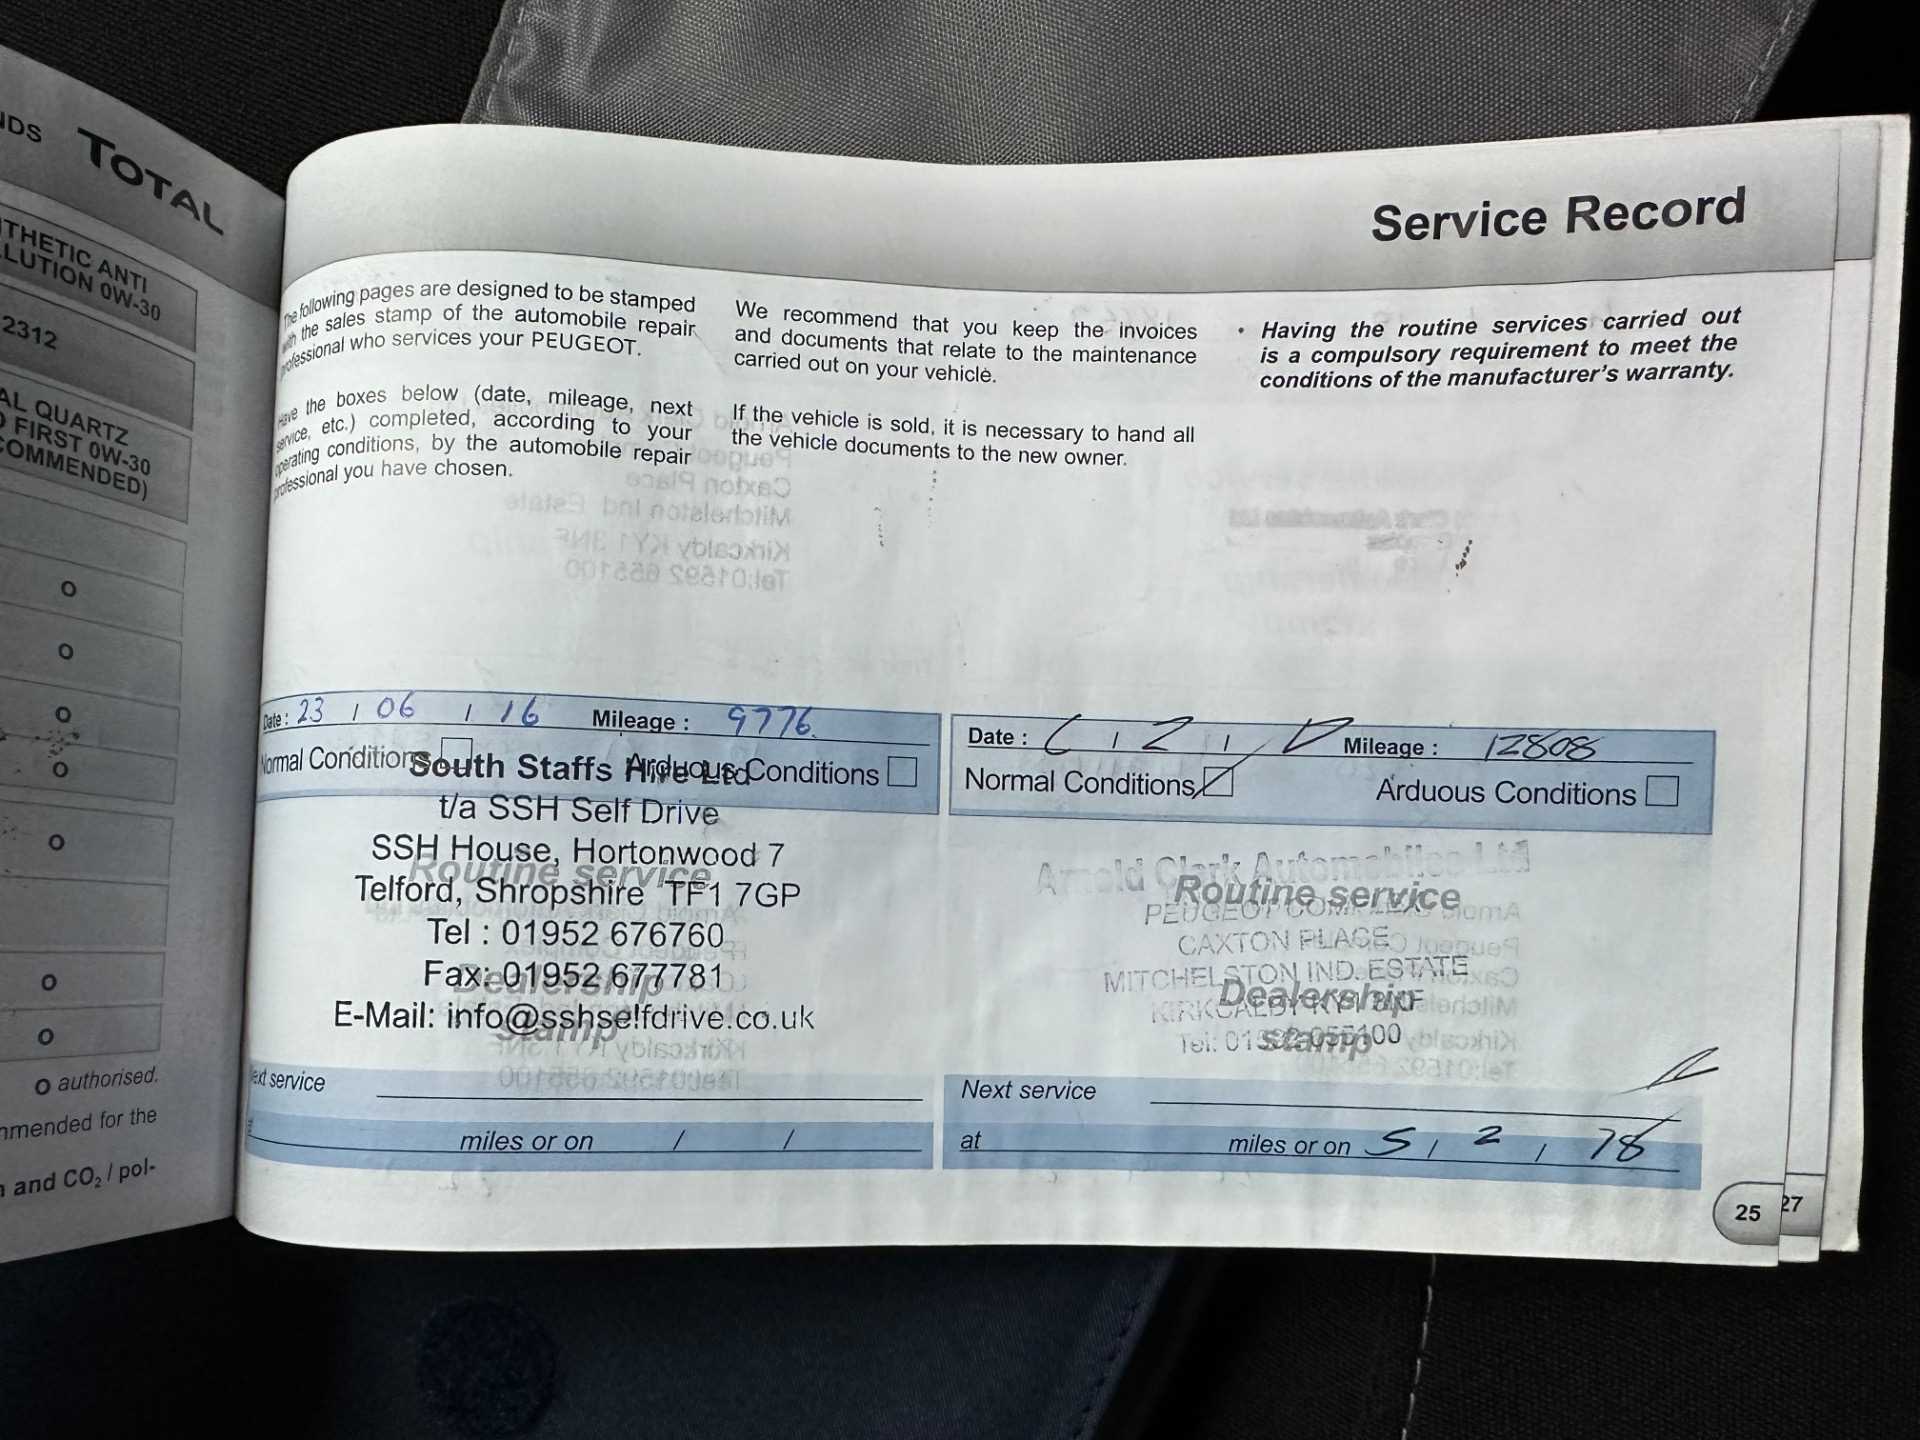 NDS TOTAL
THETIC ANTI
LLUTION 0W-30
2312
AL QUARTZ
FIRST 0W-30
COMMENDED)
o
o
o
o
o
o
o
o authorised.
mmended for the
and CO2 / pol-
Service Record
The following pages are designed to be stamped
with the sales stamp of the automobile repair
professional who services your PEUGEOT.
Have the boxes below (date, mileage, next
service, etc.) completed, according to your
operating conditions, by the automobile repair
professional you have chosen.
We recommend that you keep the invoices
and documents that relate to the maintenance
carried out on your vehicle.
If the vehicle is sold, it is necessary to hand all
the vehicle documents to the new owner.
• Having the routine services carried out
is a compulsory requirement to meet the
conditions of the manufacturer's warranty.
Date : 23 / 06 / 16 Mileage : 9776
Normal Conditions Arduous Conditions
South Staffs Hire Ltd
t/a SSH Self Drive
SSH House, Hortonwood 7
Routine service
Telford, Shropshire TF1 7GP
Tel : 01952 676760
Fax: 01952 677781
Dealership
E-Mail: info@sshselfdrive.co.uk
stamp
Next service
miles or on / /
Date : / 2 / Mileage : 12808
Normal Conditions Arduous Conditions
Arnold Clark Automobiles Ltd
Routine service
PEUGEOT
CAXTON PLACE
MITCHELSTON IND. ESTATE
Dealership
KIRKCALDY KY1 3NF
stamp
Tel: 01592 655100
Next service
at miles or on 5 / 2 / 18
25
27